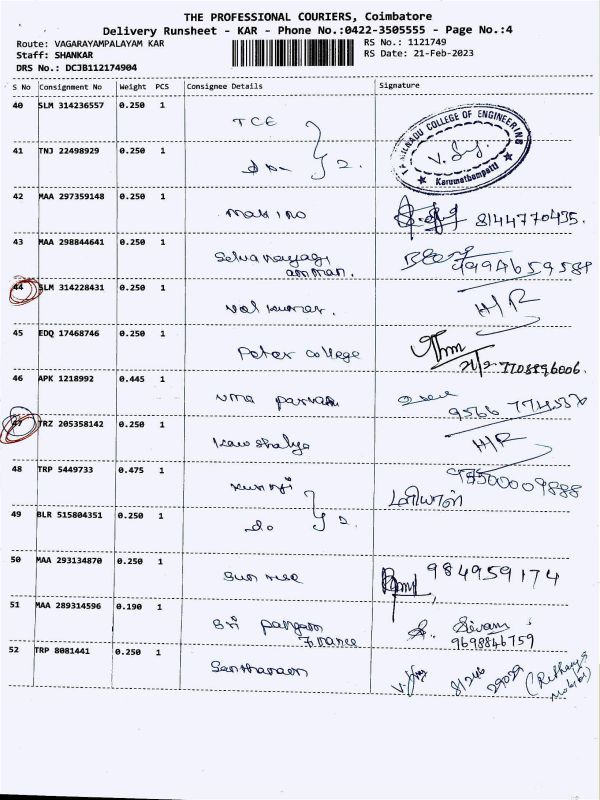 THE PROFESSIONAL COURIERS, Coimbatore
Delivery Runsheet - KAR - Phone No.:0422-3505555 - Page No.:4
Route: VAGARAYAMPALAYAM KAR
RS No.: 1121749
Staff: SHANKAR
RS Date: 21-Feb-2023
DRS No.: DCJB112174904
S No Consignment No Weight PCS Consignee Details Signature
40 SLM 314236557 0.250 1 TCE
TAMILNADU COLLEGE OF ENGINEERING
Karumathampatti
41 TNJ 22498929 0.250 1 do 2.
42 MAA 297359148 0.250 1 makino 8144770435.
43 MAA 298844641 0.250 1 Selvanayagi
amman.
44 SLM 314228431 0.250 1 val kumar. H/R
45 EDQ 17468746 0.250 1 Peter college
21/2 7708896006.
46 APK 1218992 0.445 1 uma
47 TRZ 205358142 0.250 1 Kawshalya H/R
48 TRP 5449733 0.475 1
49 BLR 515804351 0.250 1 do 2.
50 MAA 293134870 0.250 1 984959174
51 MAA 289314596 0.190 1 Sri
Finance
Sivam
9698846759
52 TRP 8081441 0.250 1